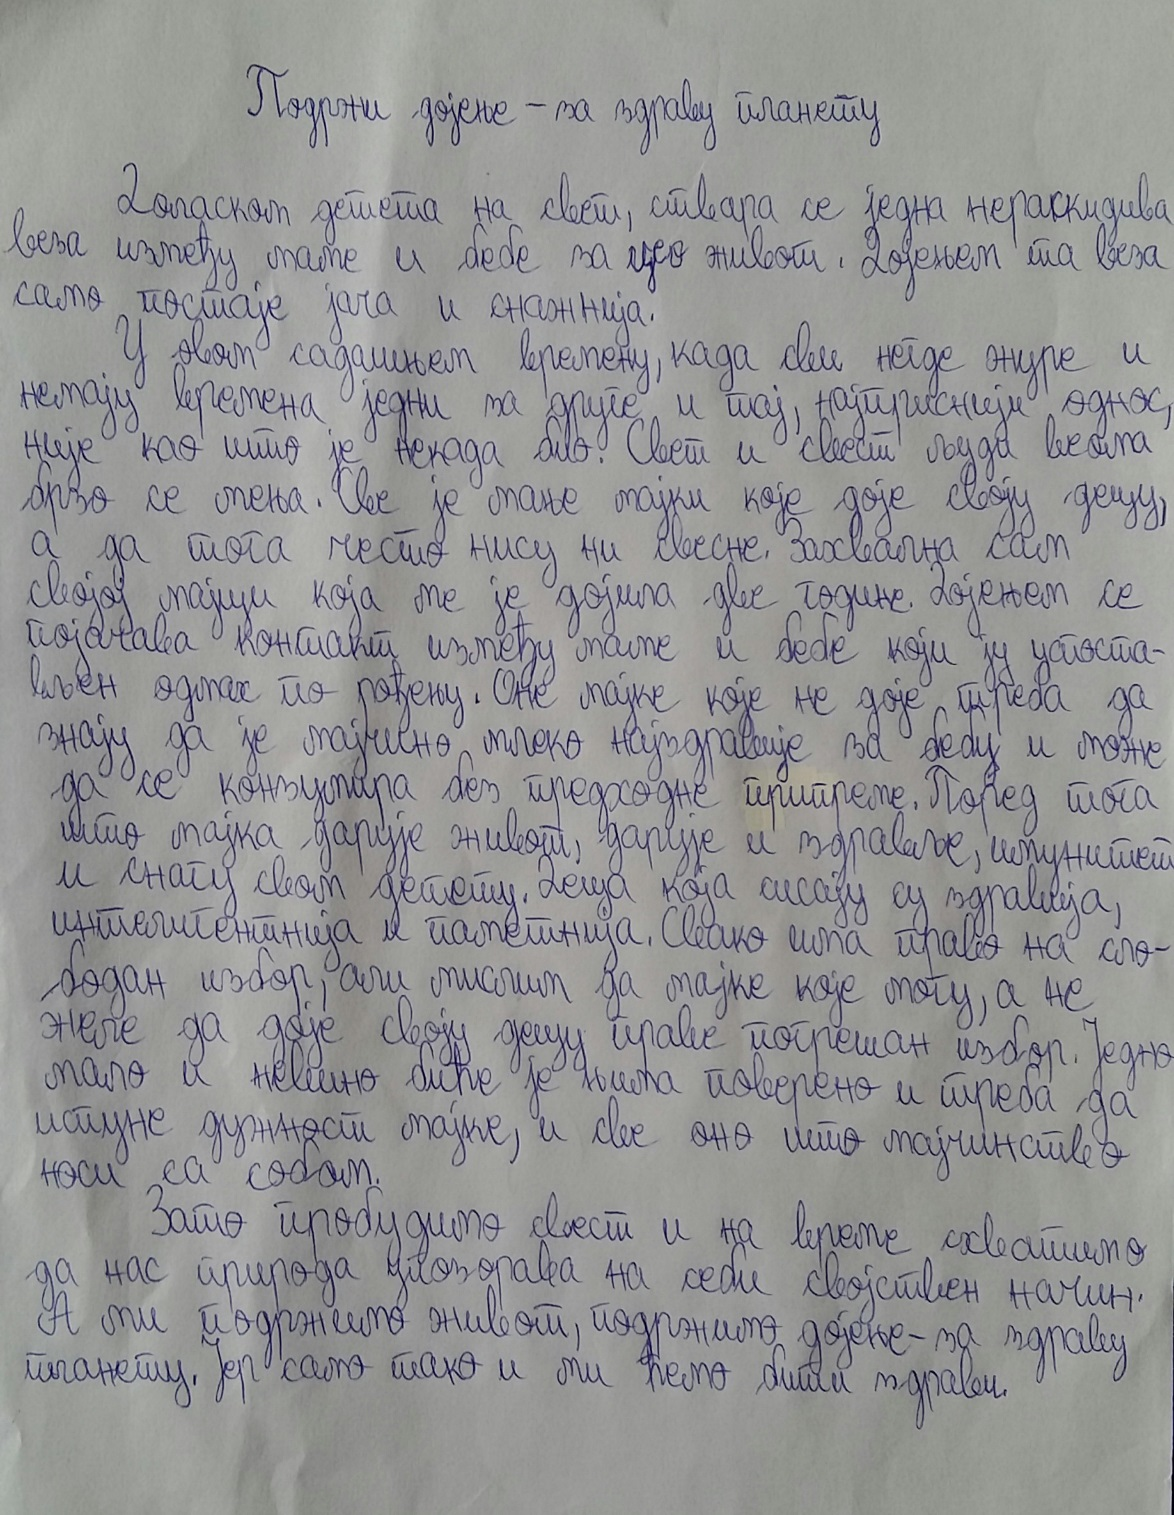 Подржи дојење – за здраву планету
Доласком детета на свет, ствара се једна нераскидива
веза између маме и бебе за цео живот. Дојењем та веза
само постаје јача и снажнија.
У овом садашњем времену, када сви негде журе и
немају времена једни за друге и тај, најприснији однос,
није као што је некада био. Свет и свест људи веома
брзо се мења. Све је мање мајки које доје своју децу,
а да тога често нису ни свесне. Захвална сам
својој мајци која ме је дојила две године. Дојењем се
појачава контакт између маме и бебе који је успоста-
вљен одмах по рођењу. Оне мајке које не доје треба да
знају да је мајчино млеко најздравије за бебу и може
да се конзумира без предходне припреме. Поред тога
што мајка дарује живот, дарује и здравље, имунитет
и снагу свом детету. Деца која сисају су здравија,
интелигентнија и паметнија. Свако има право на сло-
бодан избор, али мислим да мајке које могу, а не
желе да доје своју децу праве погрешан избор. Једно
мало и невино биће је њима поверено и треба да
испуне дужност мајке, и све оно што мајчинство
носи са собом.
Зато пробудимо свест и на време схватимо
да нас природа упозорава на себи својствен начин.
А ми подржимо живот, подржимо дојење – за здраву
планету. Јер само тако и ми ћемо бити здрави.